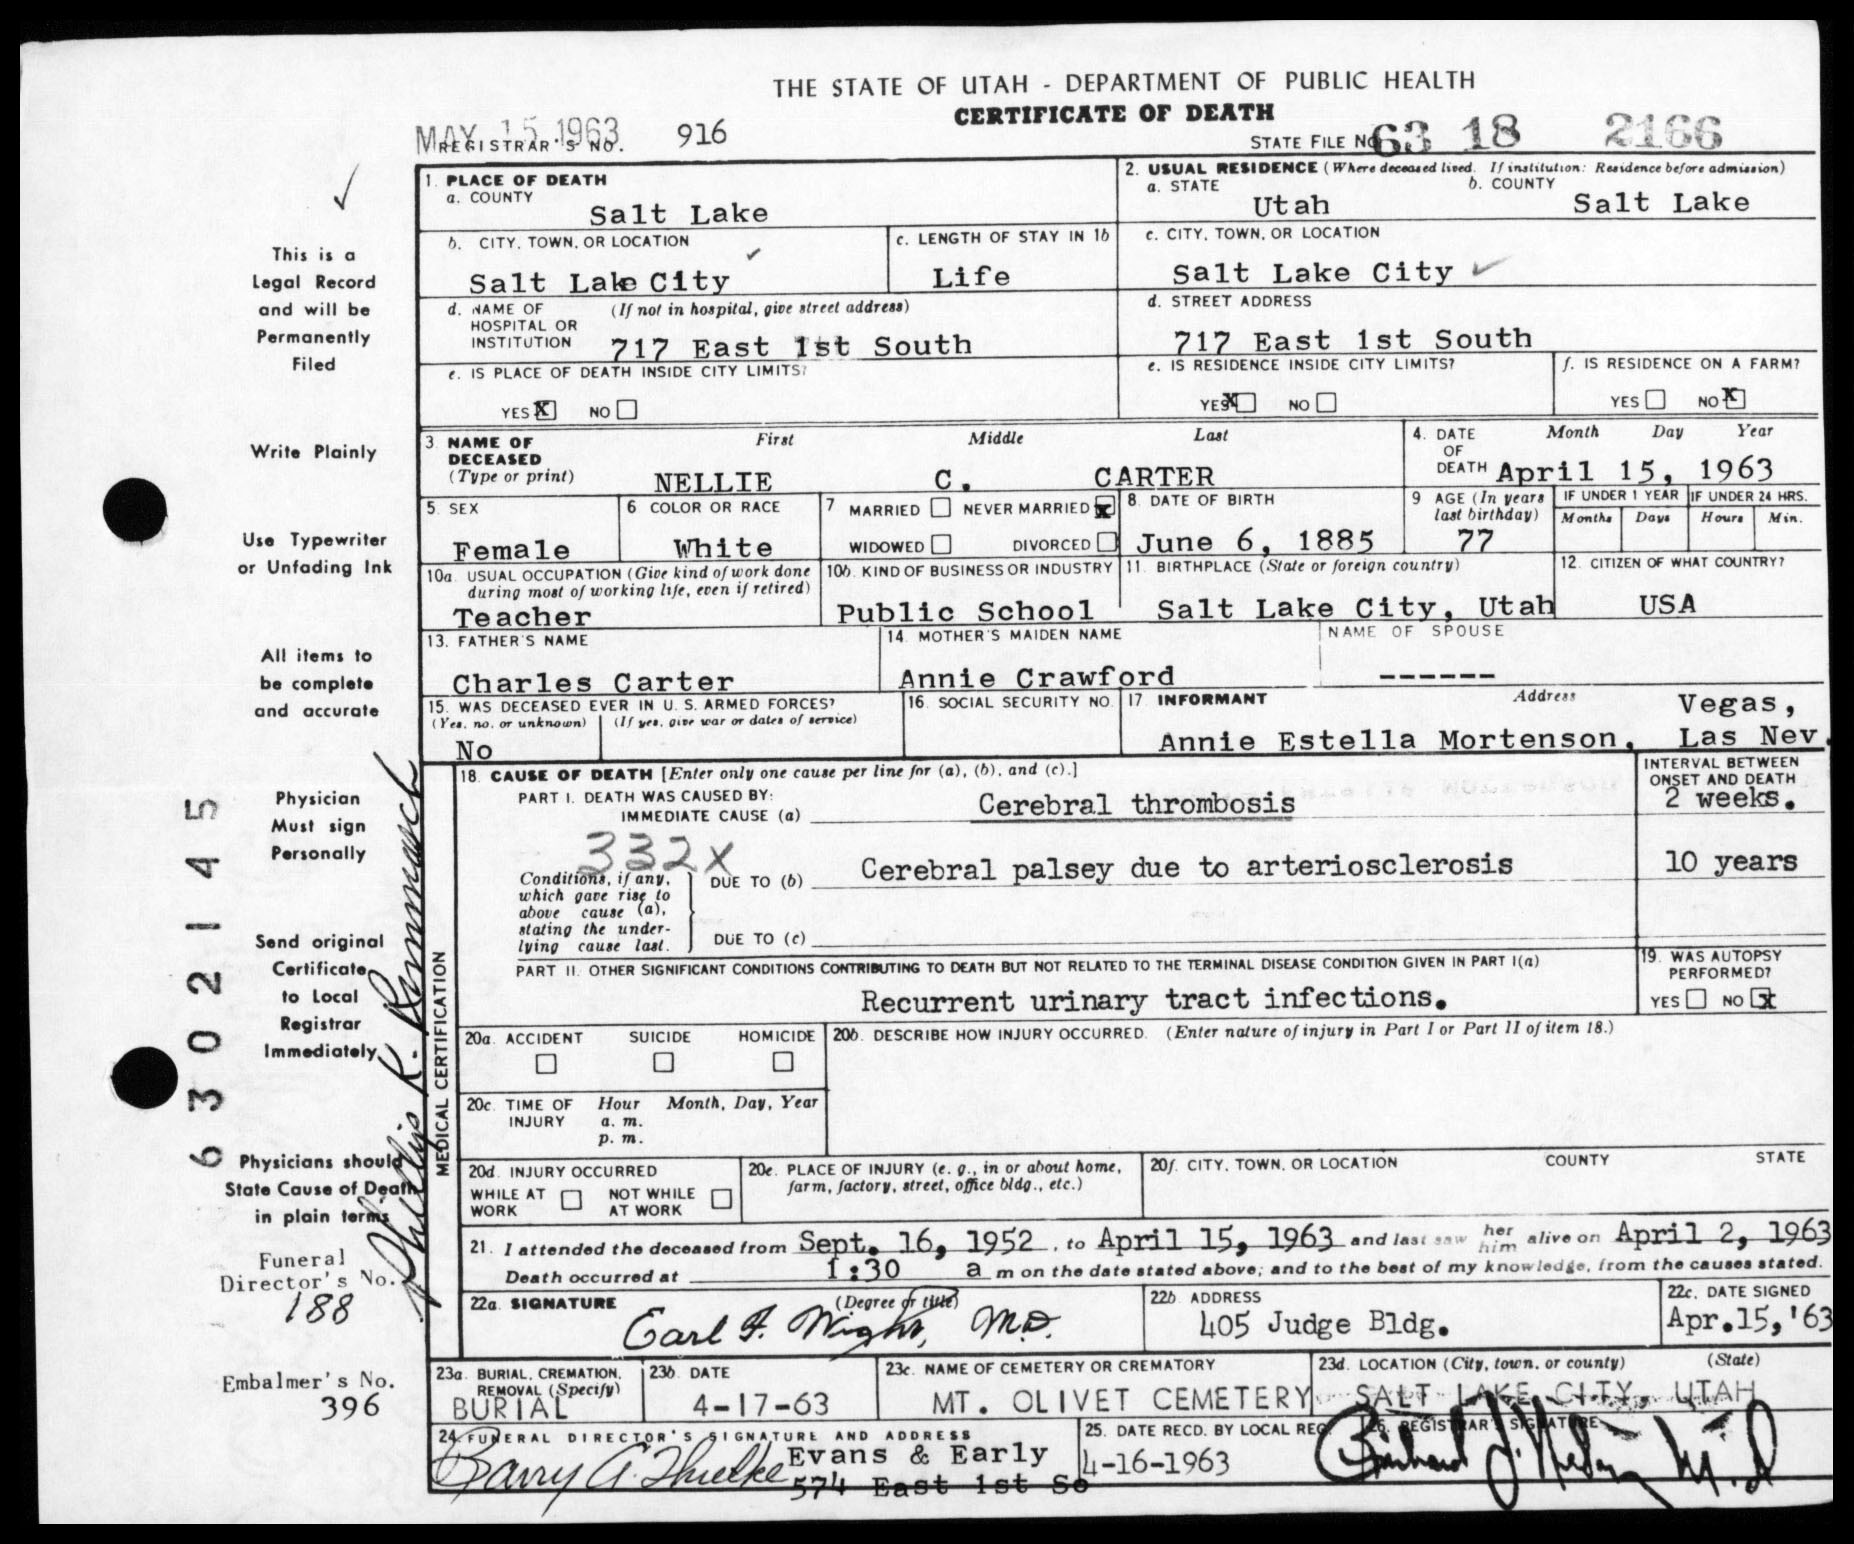 THE STATE OF UTAH - DEPARTMENT OF PUBLIC HEALTH
CERTIFICATE OF DEATH
MAY 15 1963
REGISTRAR'S NO. 916
STATE FILE NO. 63 18 2166
1. PLACE OF DEATH
a. COUNTY
Salt Lake
2. USUAL RESIDENCE (Where deceased lived. If institution: Residence before admission)
a. STATE b. COUNTY
Utah Salt Lake
b. CITY, TOWN, OR LOCATION
Salt Lake City
c. LENGTH OF STAY IN 1b
Life
c. CITY, TOWN, OR LOCATION
Salt Lake City
d. NAME OF (If not in hospital, give street address)
HOSPITAL OR
INSTITUTION 717 East 1st South
d. STREET ADDRESS
717 East 1st South
e. IS PLACE OF DEATH INSIDE CITY LIMITS?
YES X NO
e. IS RESIDENCE INSIDE CITY LIMITS?
YES X NO
f. IS RESIDENCE ON A FARM?
YES NO X
3. NAME OF First Middle Last
DECEASED
(Type or print) NELLIE C. CARTER
4. DATE Month Day Year
OF
DEATH April 15, 1963
5. SEX
Female
6 COLOR OR RACE
White
7 MARRIED NEVER MARRIED X
WIDOWED DIVORCED
8. DATE OF BIRTH
June 6, 1885
9 AGE (In years
last birthday)
77
IF UNDER 1 YEAR
Months Days
IF UNDER 24 HRS.
Hours Min.
10a. USUAL OCCUPATION (Give kind of work done
during most of working life, even if retired)
Teacher
10b. KIND OF BUSINESS OR INDUSTRY
Public School
11. BIRTHPLACE (State or foreign country)
Salt Lake City, Utah
12. CITIZEN OF WHAT COUNTRY?
USA
13. FATHER'S NAME
Charles Carter
14. MOTHER'S MAIDEN NAME
Annie Crawford
NAME OF SPOUSE
------
15. WAS DECEASED EVER IN U. S. ARMED FORCES?
(Yes, no, or unknown) (If yes, give war or dates of service)
No
16. SOCIAL SECURITY NO.
17. INFORMANT Address
Vegas,
Annie Estella Mortenson, Las Nev.
18. CAUSE OF DEATH [Enter only one cause per line for (a), (b), and (c).]
INTERVAL BETWEEN
ONSET AND DEATH
PART I. DEATH WAS CAUSED BY:
IMMEDIATE CAUSE (a) Cerebral thrombosis 2 weeks.
332X
Conditions, if any,
which gave rise to
above cause (a),
stating the under-
lying cause last.
DUE TO (b) Cerebral palsey due to arteriosclerosis 10 years
DUE TO (c)
PART II. OTHER SIGNIFICANT CONDITIONS CONTRIBUTING TO DEATH BUT NOT RELATED TO THE TERMINAL DISEASE CONDITION GIVEN IN PART I(a)
Recurrent urinary tract infections.
19. WAS AUTOPSY
PERFORMED?
YES NO X
20a. ACCIDENT SUICIDE HOMICIDE
20b. DESCRIBE HOW INJURY OCCURRED. (Enter nature of injury in Part I or Part II of item 18.)
20c. TIME OF Hour Month, Day, Year
INJURY a. m.
p. m.
20d. INJURY OCCURRED
WHILE AT NOT WHILE
WORK AT WORK
20e. PLACE OF INJURY (e. g., in or about home,
farm, factory, street, office bldg., etc.)
20f. CITY, TOWN, OR LOCATION COUNTY STATE
21. I attended the deceased from Sept. 16, 1952, to April 15, 1963 and last saw her him alive on April 2, 1963
Death occurred at 1:30 a m on the date stated above; and to the best of my knowledge, from the causes stated.
22a. SIGNATURE (Degree or title)
Earl F. Wight, M.D.
22b. ADDRESS
405 Judge Bldg.
22c. DATE SIGNED
Apr.15,'63
23a. BURIAL, CREMATION,
REMOVAL (Specify)
BURIAL
23b. DATE
4-17-63
23c. NAME OF CEMETERY OR CREMATORY
MT. OLIVET CEMETERY
23d. LOCATION (City, town, or county) (State)
SALT LAKE CITY, UTAH
24. FUNERAL DIRECTOR'S SIGNATURE AND ADDRESS
Evans & Early
574 East 1st So
25. DATE RECD. BY LOCAL REG.
4-16-1963
26. REGISTRAR'S SIGNATURE
This is a
Legal Record
and will be
Permanently
Filed
Write Plainly
Use Typewriter
or Unfading Ink
All items to
be complete
and accurate
Physician
Must sign
Personally
Send original
Certificate
to Local
Registrar
Immediately
Physicians should
State Cause of Death
in plain terms
Funeral
Director's No.
188
Embalmer's No.
396
6302145
Phillip R.
MEDICAL CERTIFICATION